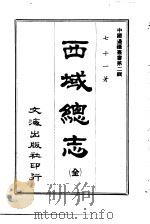 中國邊疆叢書第二輯
七十一著
西域總志
(全)
文海出版社印行